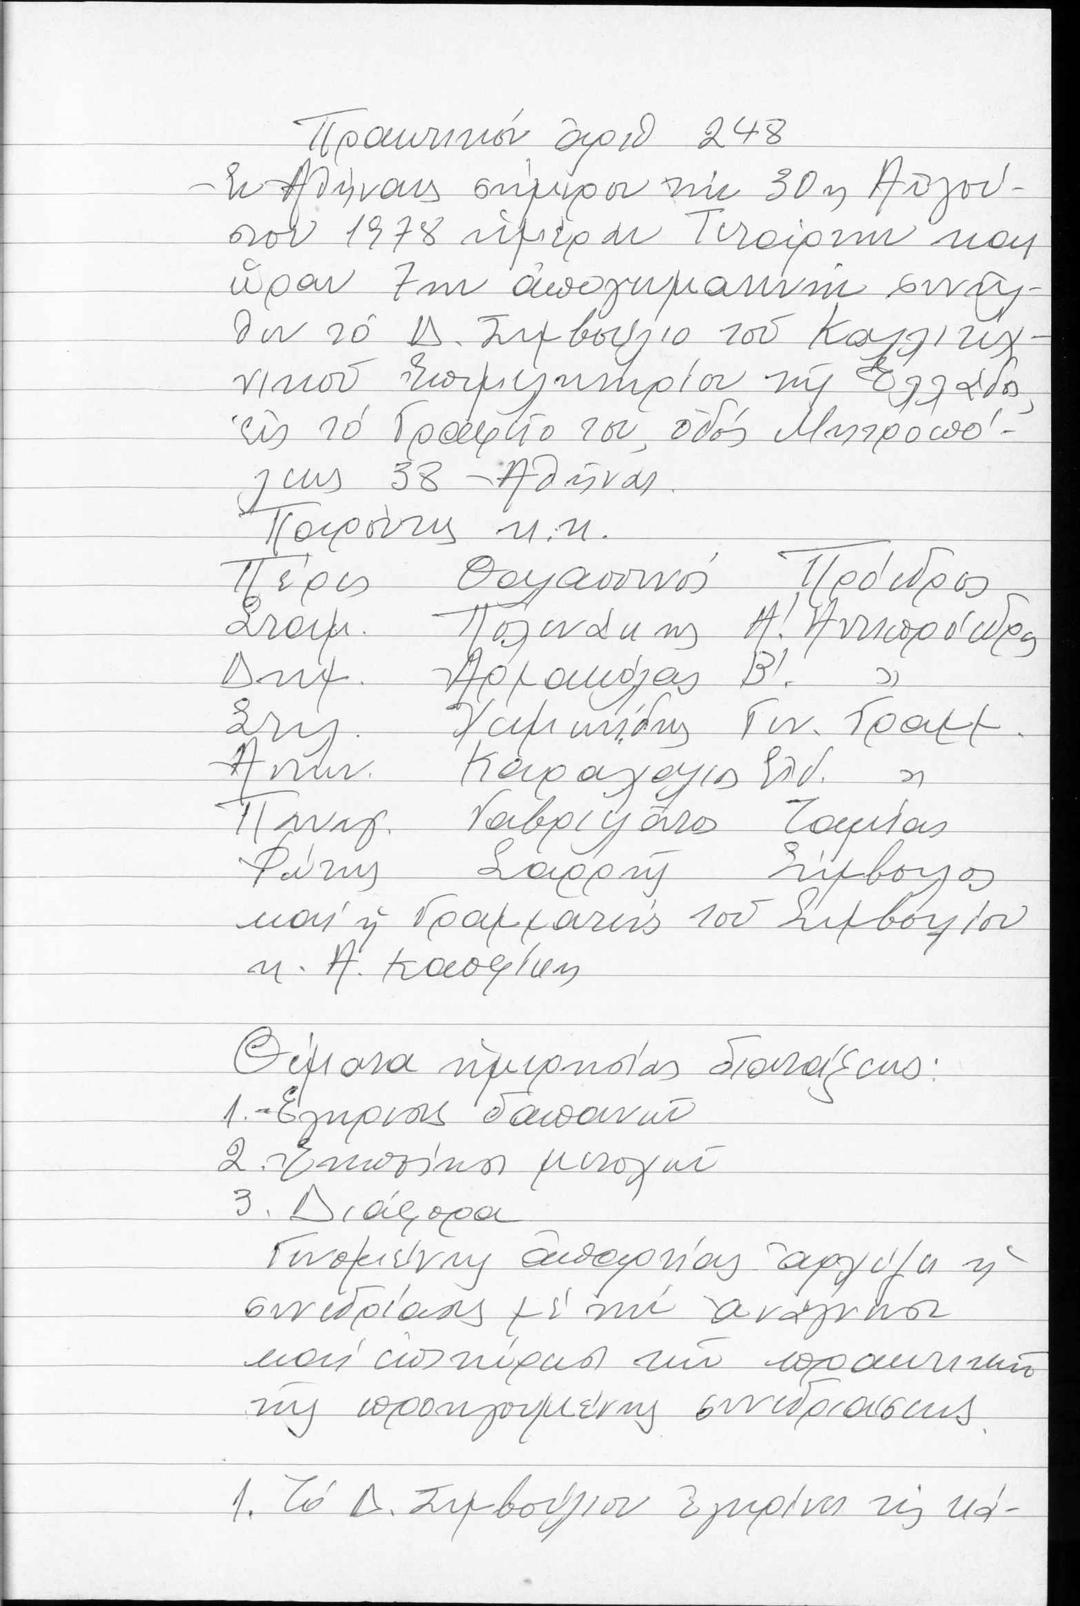 Πρακτικόν ἀριθ 248
Ἐν Ἀθήναις σήμερον τήν 30η Αὐγού-
στου 1978 ἡμέραν Τετάρτην καί
ὥραν 7ην ἀπογευματινήν συνῆλ-
θεν τό Δ. Συμβούλιο τοῦ Καλλιτεχ-
νικοῦ Ἐπιμελητηρίου τῆς Ἑλλάδος,
εἰς τό Γραφεῖο του, ὁδός Μητροπό-
λεως 38 Ἀθῆναι.
Παρόντες κ.κ.
Πέρις Θαλασσινός Πρόεδρος
Σταμ. Πολενάκης Α'. Ἀντιπρόεδρος
Δημ. Ἀρμακόλας Β'. »
Στυλ. Γεν. Γραμμ.
Ἀντών. Καραχάλιος Εἰδ. »
Παναγ. Γαβριελᾶτος Ταμίας
Φώτης Σαρρῆς Σύμβουλος
καί ἡ Γραμματεύς τοῦ Συμβουλίου
κ. Α. Καπφίκη
Θέματα ἡμερησίας διατάξεως:
1. Ἔγκρισις δαπανῶν
2. Ἐκποίησι μετοχῶν
3. Διάφορα
Γενομένης ἀπαρτίας ἀρχίζει ἡ
συνεδρίασις μέ τήν ἀνάγνωσι
καί ἐπικύρωσι τῶν πρακτικῶν
τῆς προηγουμένης συνεδριάσεως.
1. Τό Δ. Συμβούλιον ἐγκρίνει τίς κά-